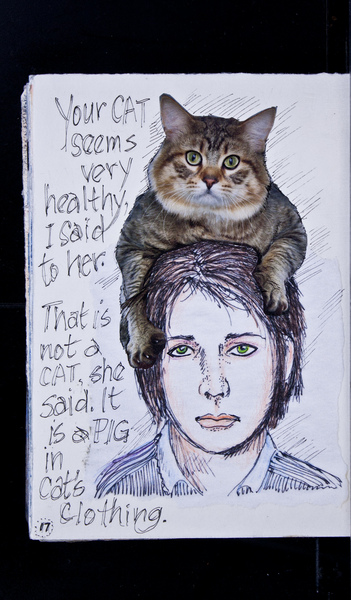 Your CAT
seems
very
healthy,
I said
to her.
That is
not a
CAT, she
said. It
is a PIG
in
cat's
clothing.
17